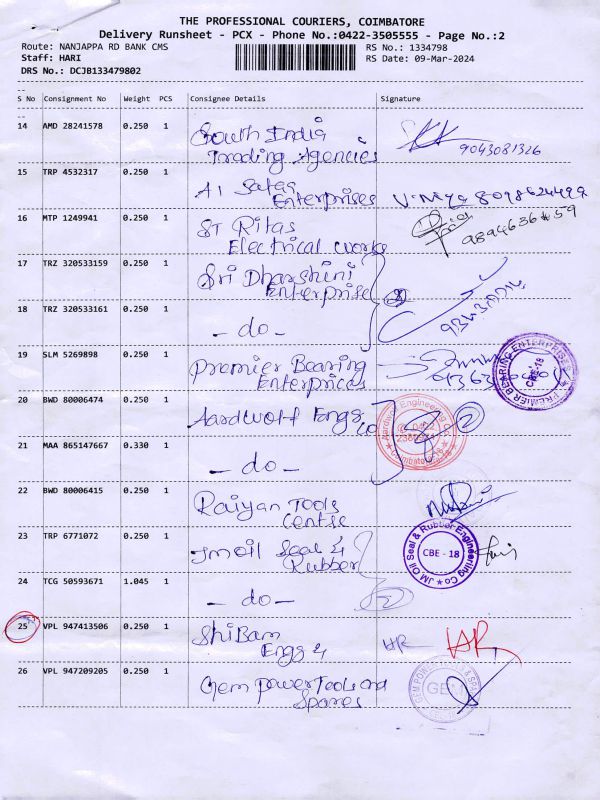 THE PROFESSIONAL COURIERS, COIMBATORE
Delivery Runsheet - PCX - Phone No.:0422-3505555 - Page No.:2
Route: NANJAPPA RD BANK CMS RS No.: 1334798
Staff: HARI RS Date: 09-Mar-2024
DRS No.: DCJB133479802
S No Consignment No Weight PCS Consignee Details Signature
14 AMD 28241578 0.250 1 South India
Trading Agencies 9043081326
15 TRP 4532317 0.250 1 A1 Satas
Enterprises 8098624499
16 MTP 1249941 0.250 1 ST Ritas
Electrical works
17 TRZ 320533159 0.250 1 Sri Dharshini
Enterprise
18 TRZ 320533161 0.250 1 - do -
19 SLM 5269898 0.250 1 Premier Bearing
Enterprices
PREMIER BEARING ENTERPRISES
CBE-18
20 BWD 80006474 0.250 1 Aardwolf Engg Co
Aardwolf Engineering Co
21 MAA 865147667 0.330 1 - do -
22 BWD 80006415 0.250 1 Raiyan Tools
Centre
23 TRP 6771072 0.250 1 JM Oil Seal &
Rubber
JM Oil Seal & Rubber Engineering Co
CBE - 18
24 TCG 50593671 1.045 1 - do -
25 VPL 947413506 0.250 1 Shibam
Engg &
HR HR
26 VPL 947209205 0.250 1 Gem Power Tools and
Spares
GEM